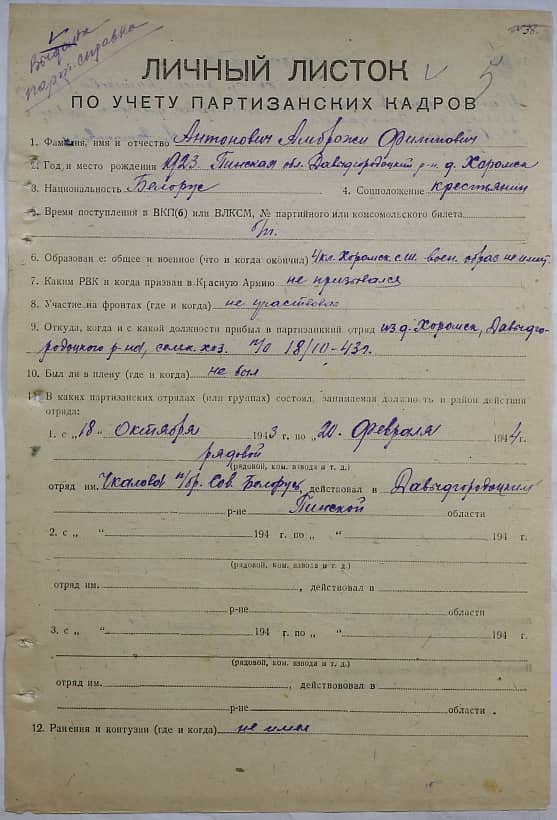 Выдана
парт. справка
38.
5
ЛИЧНЫЙ ЛИСТОК
ПО УЧЕТУ ПАРТИЗАНСКИХ КАДРОВ
1. Фамилия, имя и отчество Антонович Амброжи Филипович
2. Год и место рождения 1923. Пинская обл. Давыдгородоцкий р-н д. Хоромск
3. Национальность Белорус 4. Соцположение крестьянин
5. Время поступления в ВКП(б) или ВЛКСМ, № партийного или комсомольского билета
б/п.
6. Образован е: общее и военное (что и когда окончил) 4 кл. Хоромск с.ш. воен. образ не имит.
7. Каким РВК и когда призван в Красную Армию не призовался
8. Участие на фронтах (где и когда) не участвовал
9. Откуда, когда и с какой должности прибыл в партизанкий отряд из д. Хоромск, Давыдго-
родоцкого р-на, сельк. хоз. п/о 18/10-43г.
10. Был ли в плену (где и когда) не был
11. В каких партизанских отрядах (или группах) состоял, занимаемая должность и район действия
отряда:
1. с „18" Октября 1943 г. по „20. Февраля 1944г.
рядовой
(рядовой, ком. взвода и т. д.)
отряд им. Чкалова п/бр. Сов. Белорус, действовал в Давыдгородоцким
р-не Пинской области
2. с „ “ 194 г. по „ “ 194 г.
(рядовой, ком. взвода и т. д.)
отряд им. , действовал в
р-не области
3. с „ “ 194 г. по „ “ 194 г.
(рядовой, ком. взвода и т. д.)
отряд им. , действововал в
р-не области
12. Ранения и контузии (где и когда) не имел